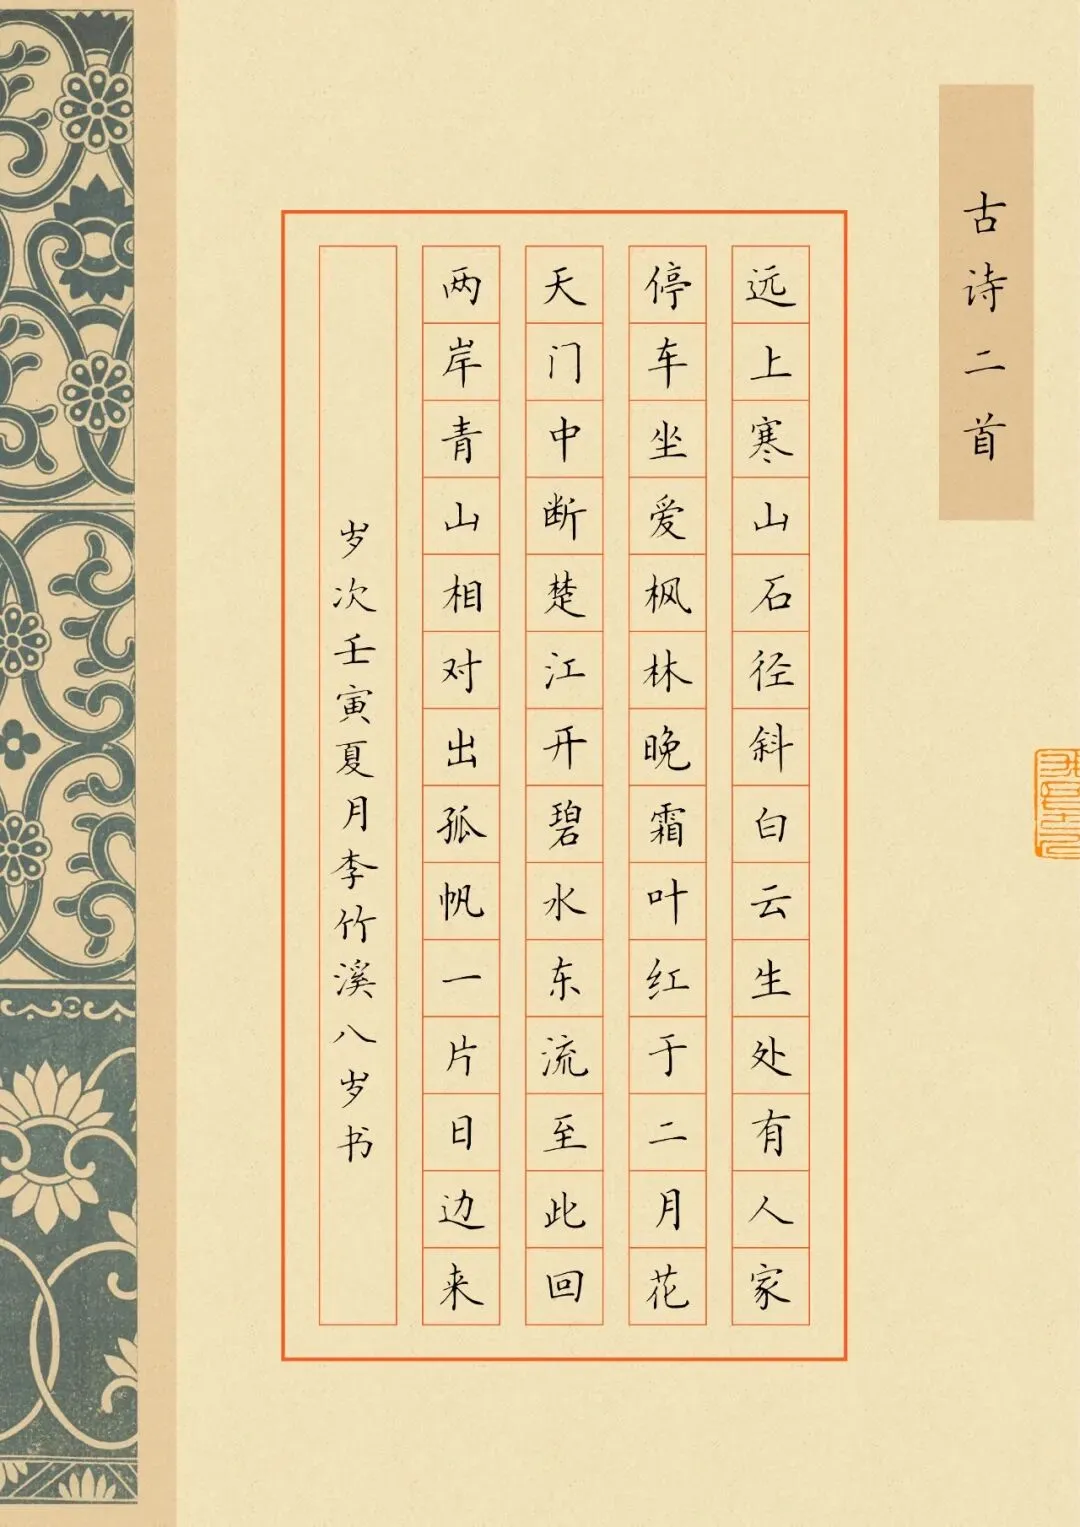 古诗二首
远上寒山石径斜白云生处有人家
停车坐爱枫林晚霜叶红于二月花
天门中断楚江开碧水东流至此回
两岸青山相对出孤帆一片日边来
岁次壬寅夏月李竹溪八岁书